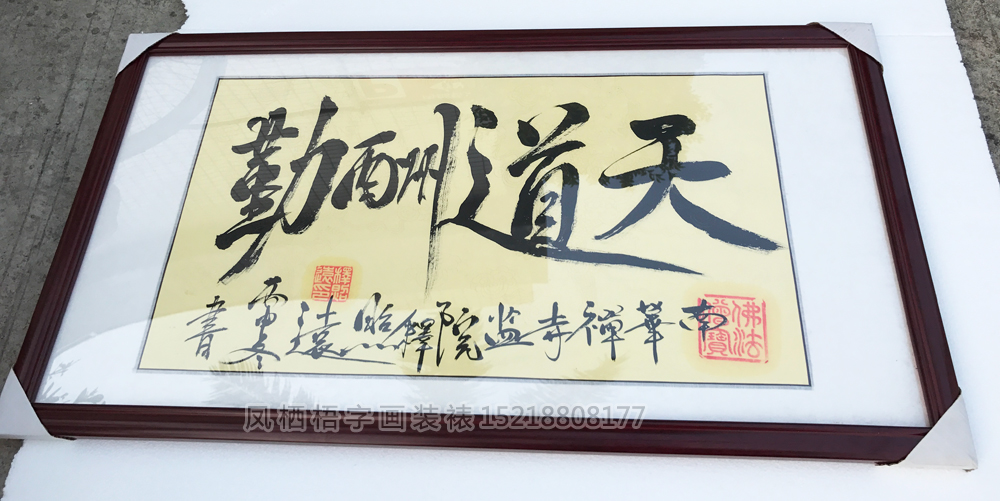 天道酬勤
南華禪寺监院釋照遠冬書
佛法僧寶
釋照遠印
凤栖梧字画装裱 15218808177